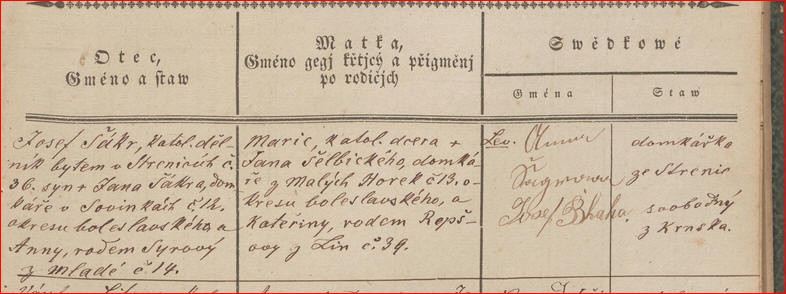 Otec,
Gméno a staw
Matka,
Gméno gegj křtjcý a přigmēnj
po rodičjch
Swědkowé
Gména
Staw
Josef Šákr, katol. děl-
ník bytem v Strenicích č.
36. syn + Jana Šákra, dom
káře v Sovinkách č. 12.
okresu boleslavského, a
Anny, rodem Syrový
z Mladé č. 14.
Marie, katol. dcera +
Jana Šelbického, domká-
ře z Malých Horek č 13. o-
kresu boleslavského, a
Kateřiny, rodem Repš-
ovy z Lin č. 39.
Lev. Anna
Josef Bbaha
domkářka
ze Strenic
svobodný
z Krnska.